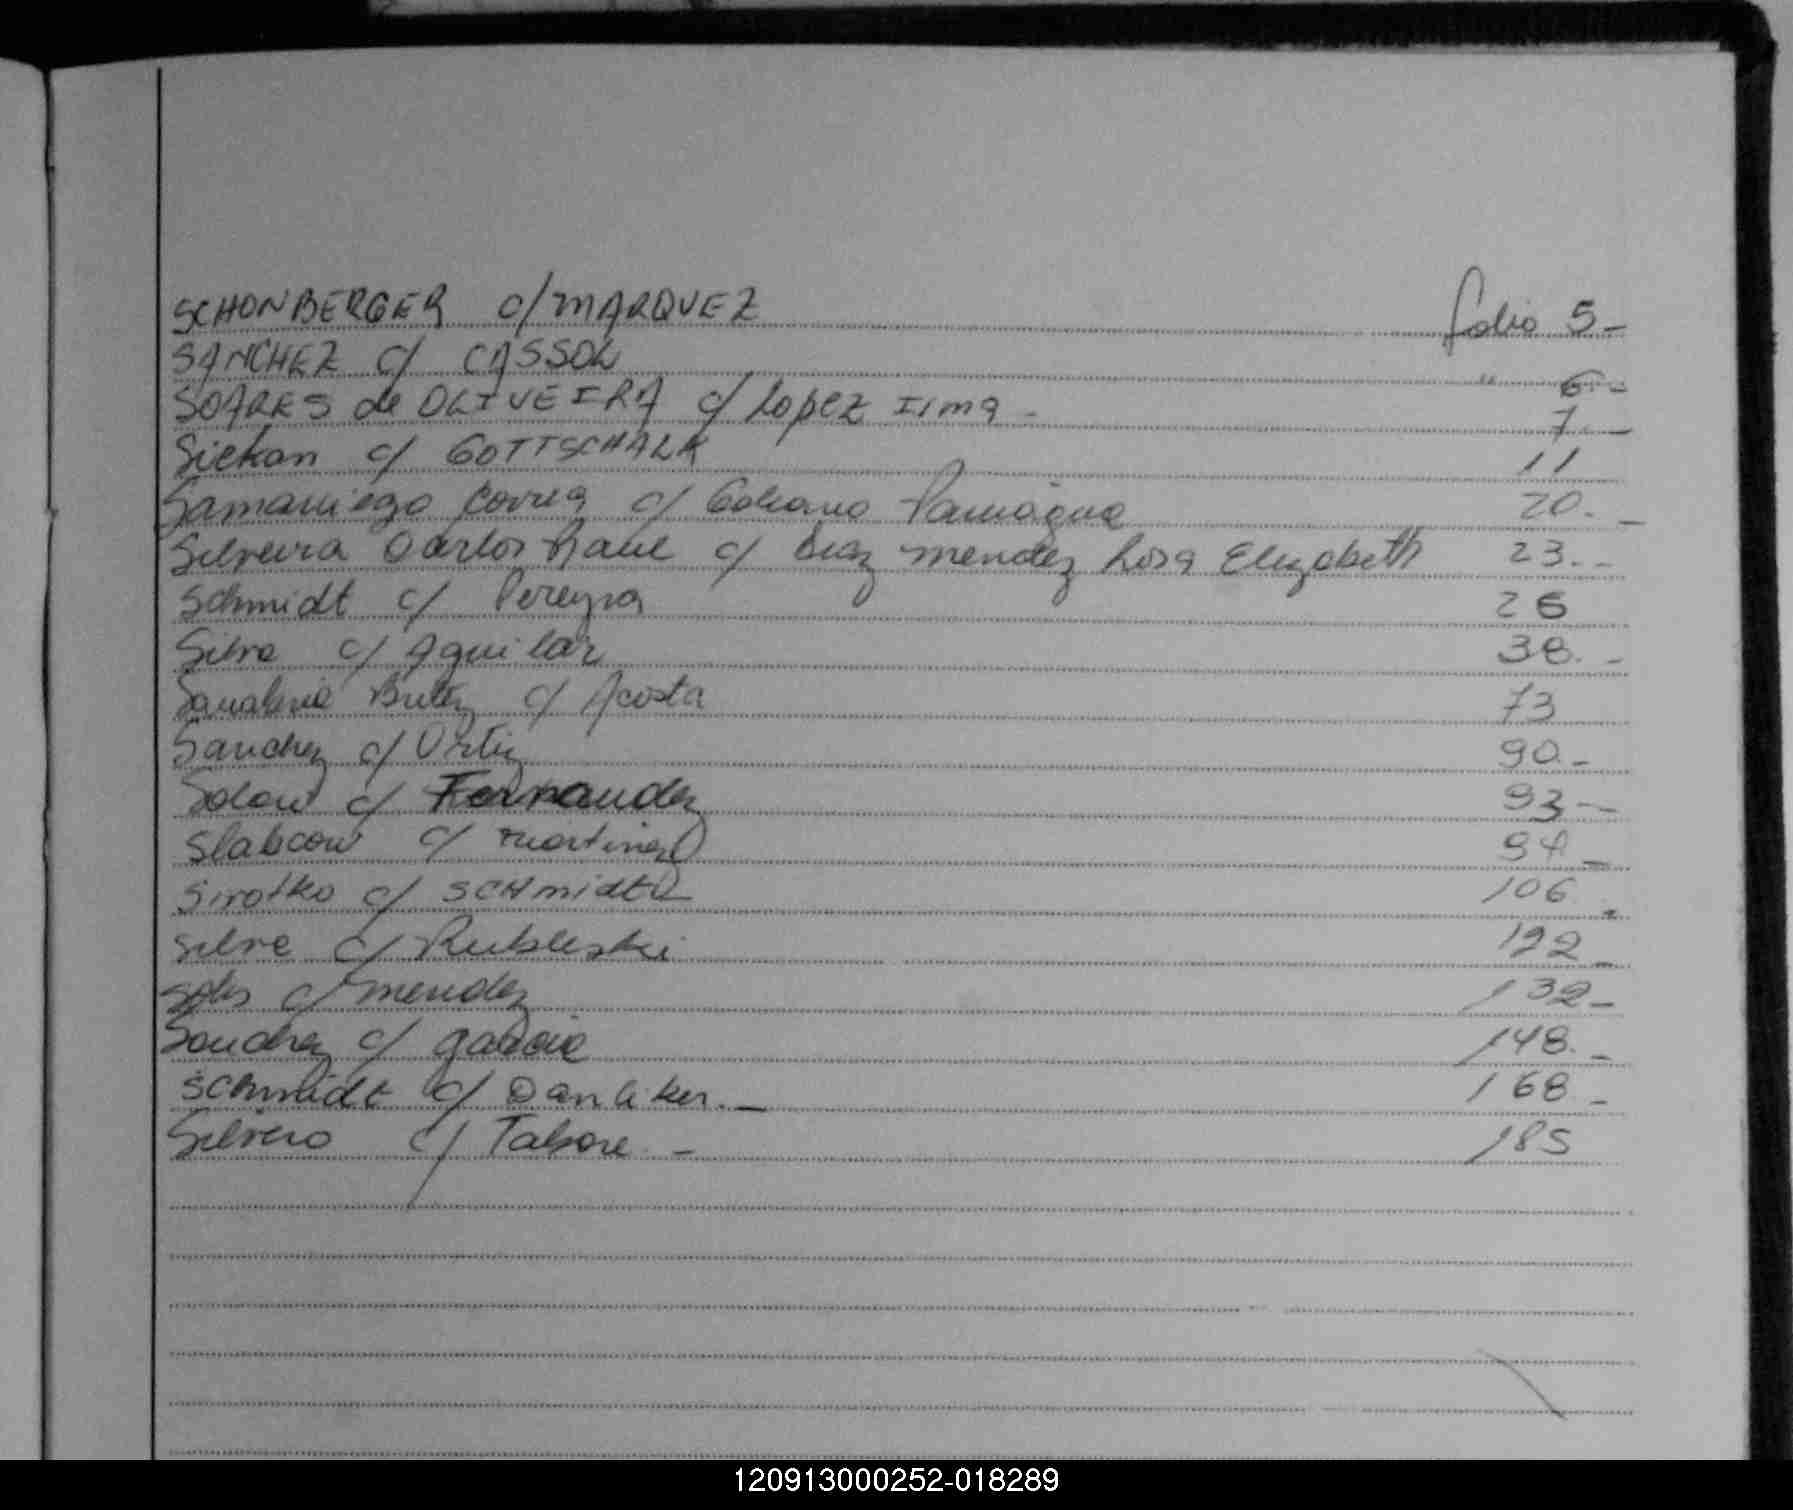 SCHONBERGER c/ MARQUEZ folio 5-
SANCHEZ c/ CASSOL " 6.-
SOARES de OLIVEIRA c/ Lopez Irma - 7.-
Siekan c/ GOTTSCHALK 11
Samaniego Correa c/ Paniagua 20.-
Silveira Carlos Raul c/ Diaz mendez Rosa Elizabeth 23.-
Schmidt c/ Pereyra 26
Silva c/ Aguilar 38.-
c/ Acosta 73
Sanchez c/ Ortiz 90.-
c/ Fernandez 93-
Slabcow c/ martinez 94-
Sirotko c/ SCHmidt 106.
Silva c/ Rubleski 122-
Solis c/ mendez 132-
Sanchez c/ garcia 148.-
Schmidt c/ Danliker.- 168.-
Silvero c/ Tabore.- 185
120913000252-018289